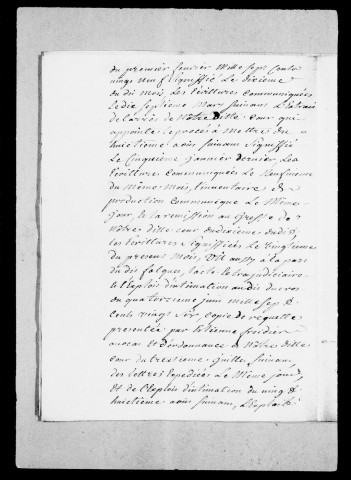 du premier fevrier Mille sept Cents
vingt neuf signiffié Le dixieme
du dit mois, Les Ecrittures communiquées
Le dix septieme Mars suivant L'extrait
de L'arrés de Notre ditte Cour qui
appointe Le procès à Mettre du
huictieme aoust suivant signiffié
Le Cinquieme janvier dernier, Les
Ecritture communiquées Le Neufvieme
du même mois, L'inventaire &
production communiqué Le Même
jour, & La remission au greffe de
Nôtre ditte cour du dixieme dudit
Les Ecrittures signiffiées Le vingtieme
du present mois, Vû aussy à La part
du dit falques, L'acte Extrajudiciaire
& L'exploit d'intimation audit ducros
du quatorzieme juin Mille sept
Cents vingt six, copie de requette
presentée par Etienne
avocat Et d'ordonnance à Nôtre ditte
Cour du treizieme juillet suivant
des Lettres Expediées Le Même jour
& de L'exploit d'intimation du vingt
huictieme aoust suivant, L'exploit